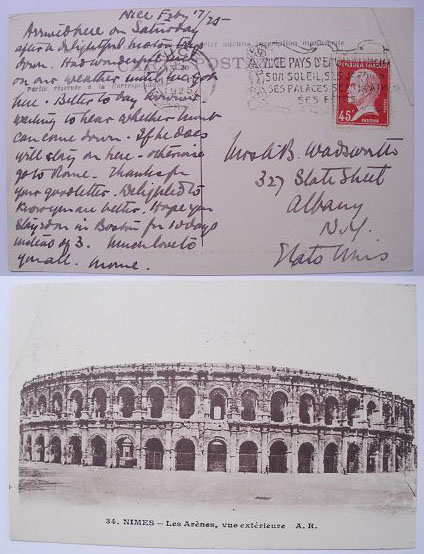 Nice Feby 17/25
Arrived here on Saturday
after a delightful motor trip
down. Had wonderful luck
on our weather until we got
here. Better to day. Now
waiting to hear whether
can come down. If he does
will stay on here - otherwise
go to Rome. Thanks for
your good letter. Delighted to
know you are better. Hope you
stayed on in Boston for 10 days
instead of 3. Much love to
you all.
aucune description manuscrite
Partie réservée à la Correspondance
POSTA
NICE PAYS D'
SON SOLEIL, SES
SES PALACES SES
SES
45c
PASTEUR
Mrs A B. Wadsworth
327 State Street
Albany
N.Y.
Etats Unis
34. NIMES - Les Arènes, vue extérieure A. R.